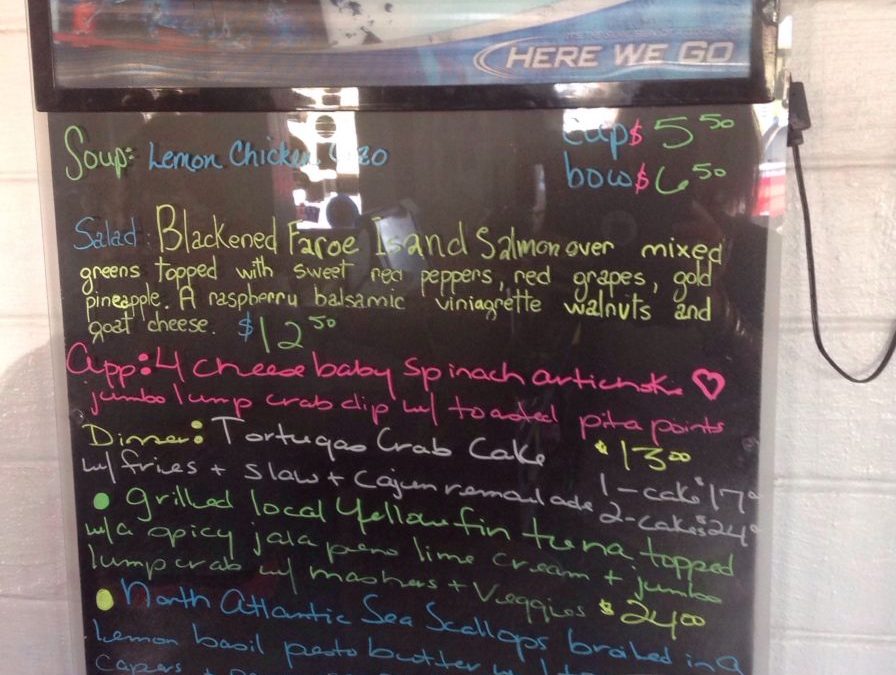 HERE WE GO
Soup: Lemon Chicken
cup $5.50
bowl $6.50
Salad: Blackened Faroe Island Salmon over mixed
greens topped with sweet red peppers, red grapes, gold
pineapple. A raspberry balsamic viniagrette walnuts and
goat cheese. $12.50
App: 4 cheese baby spinach artichoke ♡
jumbo lump crab dip w/ toasted pita points
$13.00
Dinner: Tortugas Crab Cake
w/ fries + slaw + Cajun remoulade 1-cake $17.00
2-cakes $24.00
• grilled local Yellowfin tuna topped
w/a spicy jalapeno lime cream + jumbo
lump crab w/ mashers + Veggies $24.00
• North Atlantic Sea Scallops broiled in a
lemon basil pesto butter w/
capers +